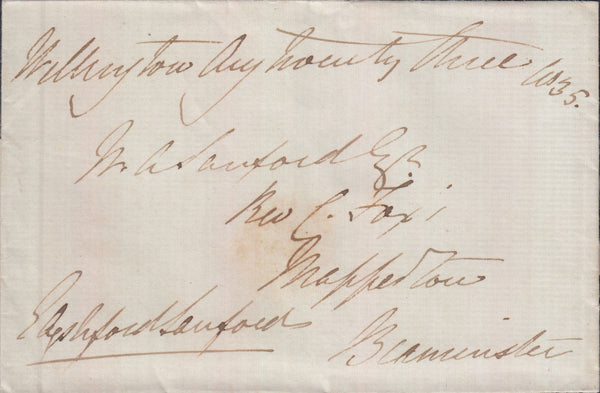 Wellington Aug twenty three 1835.
W. A. Sanford Esqr.
Rev C. Fox's
Mapperton
Beaminster
E Ayshford Sanford